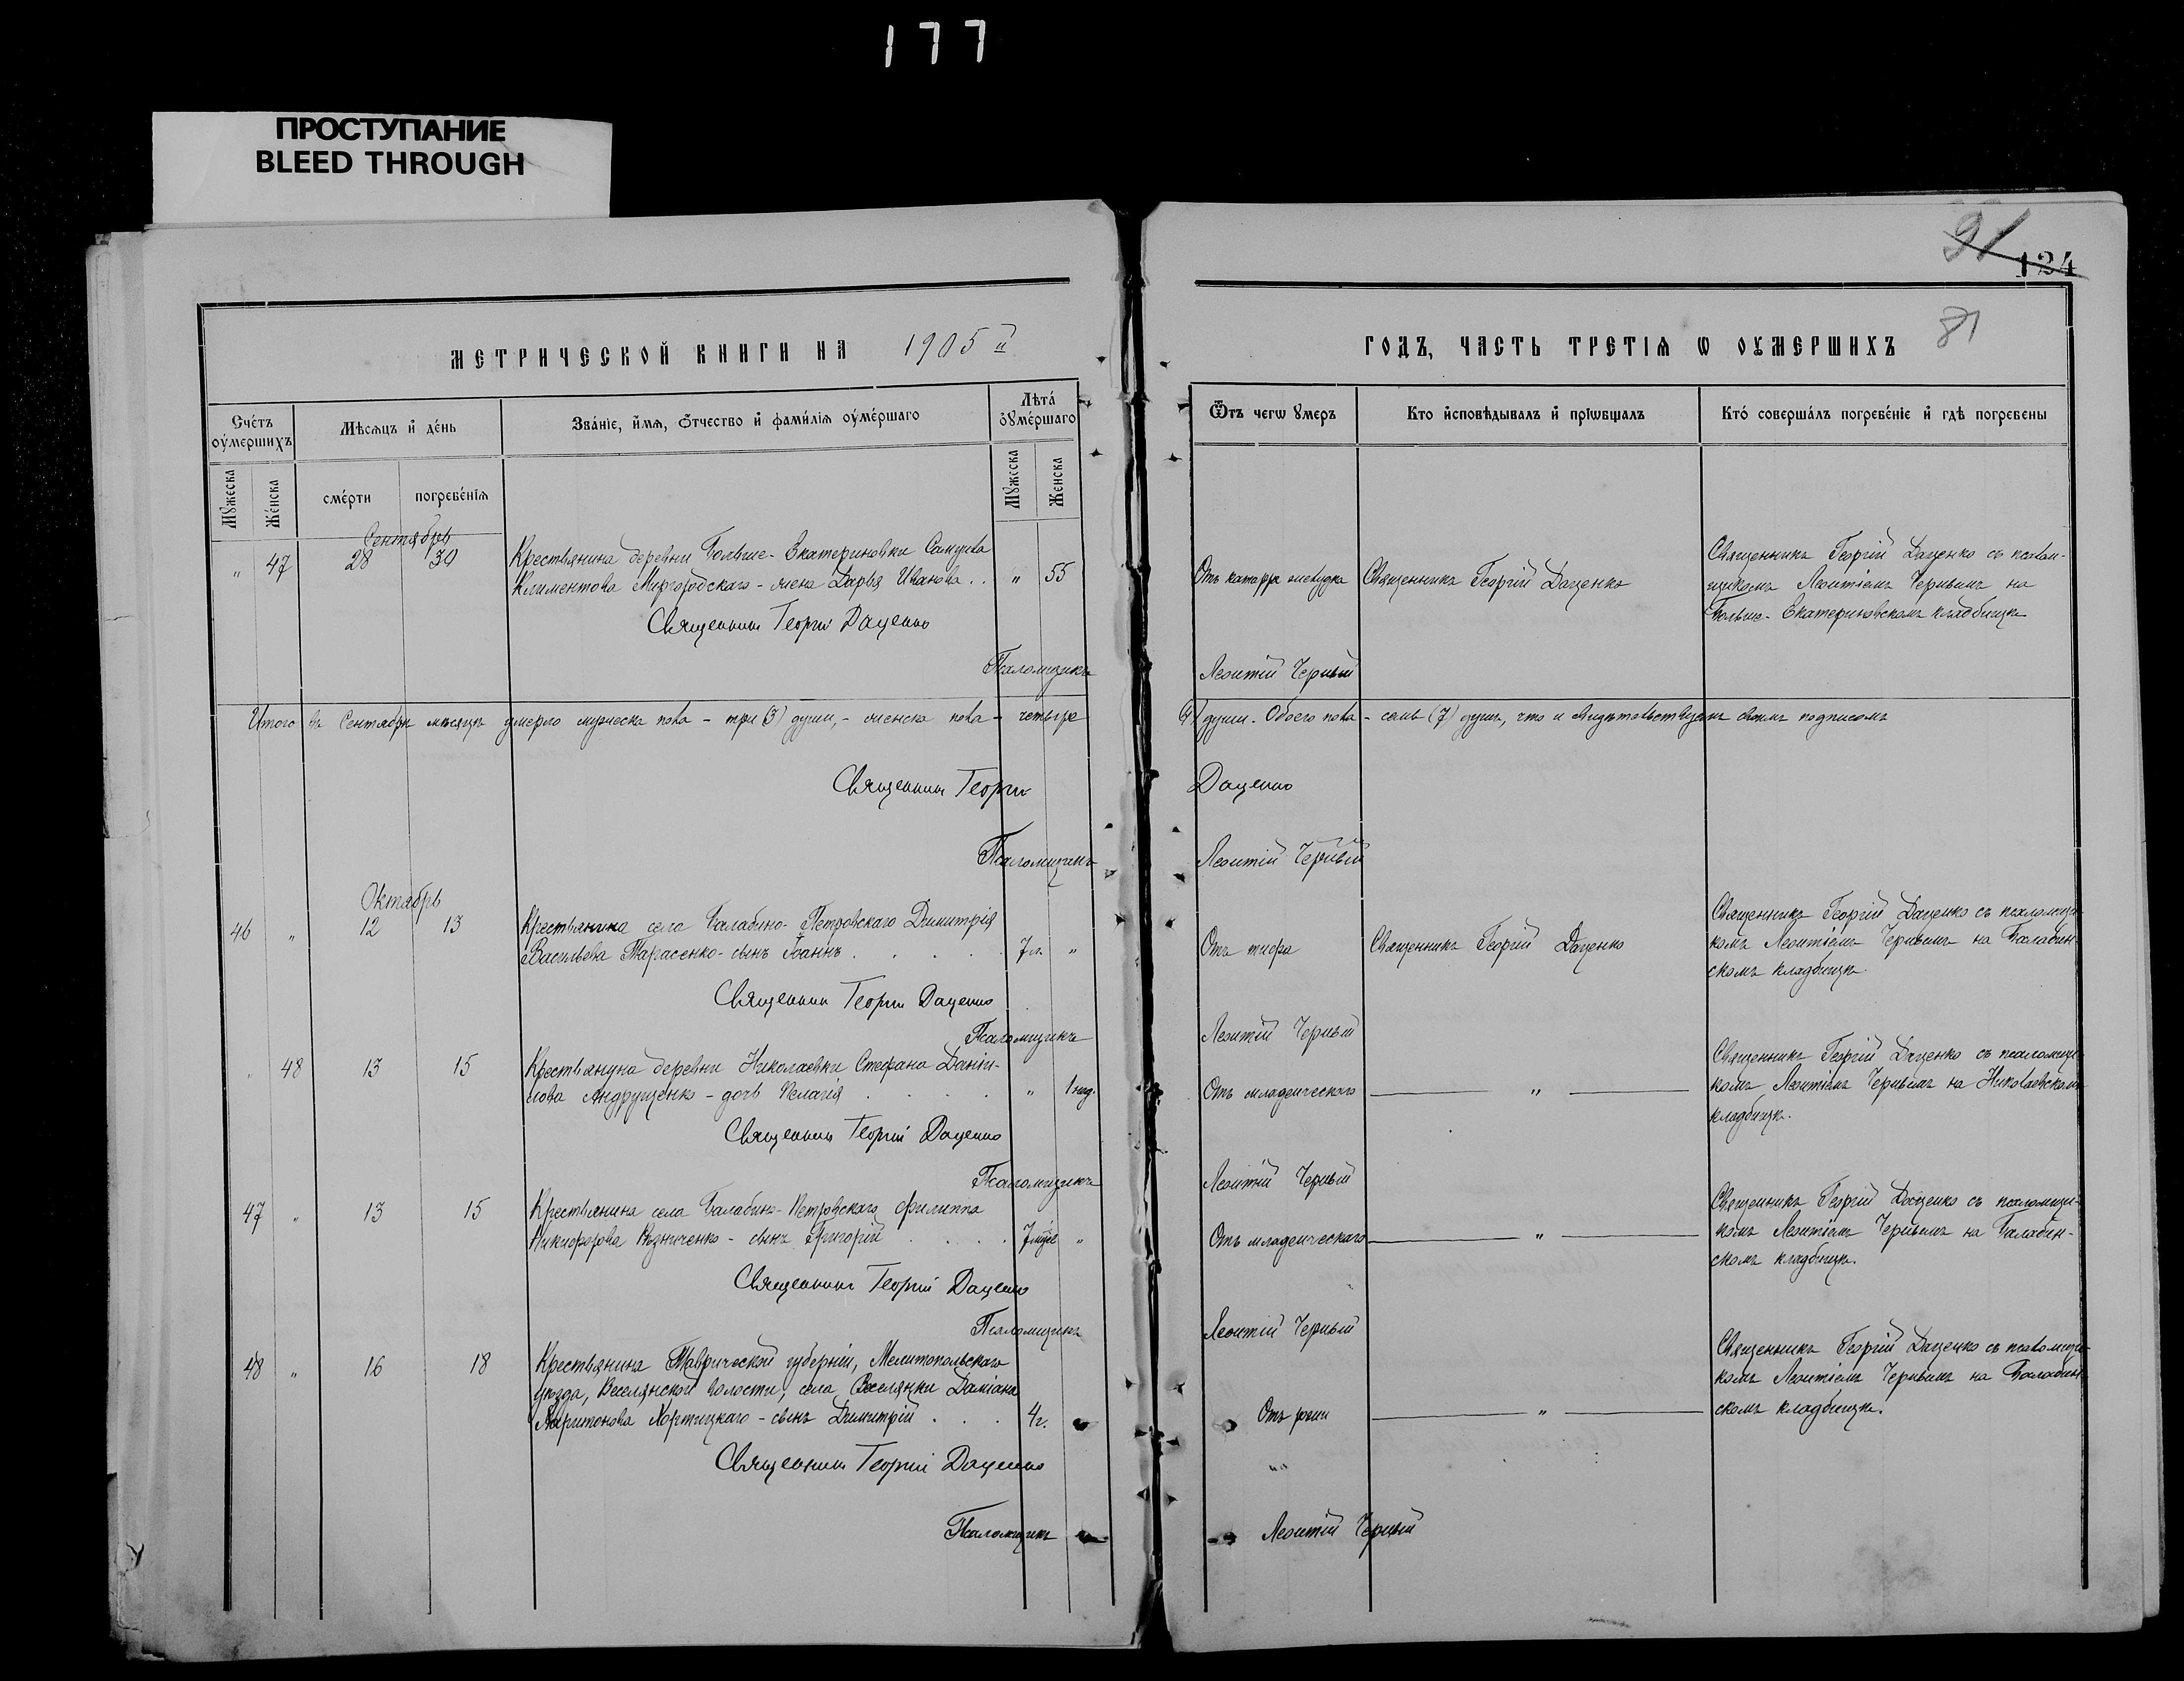 177
ПРОСТУПАНИЕ
BLEED THROUGH
91
124
81
МЕТРИЧЕСКОЙ КНИГИ НА 1905й
ГОДЪ, ЧАСТЬ ТРЕТІѦ Ѡ ОУМЕРШИХЪ
Счéтъ оумершихъ
Мѣсяцъ и дéнь
Звáніе, имя, отчество и фамилія оумéршаго
Лѣтá оумéршаго
Мужеска
Жéнска
смéрти
погребéнія
Мужеска
Женска
Ѿтъ чегѡ умеръ
Кто исповѣдывалъ и пріѡбщалъ
Ктó совершáлъ погребéніе и гдѣ погребены
Сентябрь
" 47 28 30
Крестьянина деревни Больше-Екатериновки Самуила
Климентова Миргородскаго - жена Дарья Иванова . . " 55
Отъ катарра желудка
Священникъ Георгій Даценко
Священникъ Георгій Даценко съ псалом-
щикомъ Леонтіемъ Чернымъ на
Больше-Екатериновскомъ кладбищѣ
Священникъ Георгій Даценко
Псаломщикъ Леонтій Черный
Итого въ Сентябрѣ мѣсяцѣ умерло мужеска пола - три (3) души, - женска пола - четыре (4) души. Обоего пола - семь (7) душъ, что и свидѣтельствуемъ своимъ подписомъ
Священникъ Георгій Даценко
Псаломщикъ Леонтій Черный
Октябрь
46 " 12 13
Крестьянина села Балабино-Петровскаго Димитрія
Васильева Тарасенко - сынъ Іоаннъ . . . . . 7 л. "
Отъ тифа
Священникъ Георгій Даценко
Священникъ Георгій Даценко съ псаломщи-
комъ Леонтіемъ Чернымъ на Балабин-
скомъ кладбищѣ.
Священникъ Георгій Даценко
Псаломщикъ Леонтій Черный
" 48 13 15
Крестьянина деревни Николаевки Стефана Даніи-
лова Андрущенко - дочь Пелагія . . . . " 1 нед.
Отъ младенческаго
"
Священникъ Георгій Даценко съ псаломщи-
комъ Леонтіемъ Чернымъ на Николаевскомъ
кладбищѣ.
Священникъ Георгій Даценко
Псаломщикъ Леонтій Черный
47 " 13 15
Крестьянина села Балабино-Петровскаго Филиппа
Никифорова - сынъ Григорій . . . . "
Отъ младенческаго
"
Священникъ Георгій Даценко съ псаломщи-
комъ Леонтіемъ Чернымъ на Балабин-
скомъ кладбищѣ.
Священникъ Георгій Даценко
Псаломщикъ Леонтій Черный
48 " 16 18
Крестьянина Таврической губерніи, Мелитопольскаго
уѣзда, Веселянской волости, села Веселянки Даміана
Харитонова Хортицкаго - сынъ Димитрій . . . 4 г.
Отъ рожи
"
Священникъ Георгій Даценко съ псаломщи-
комъ Леонтіемъ Чернымъ на Балабин-
скомъ кладбищѣ.
Священникъ Георгій Даценко
Псаломщикъ Леонтій Черный